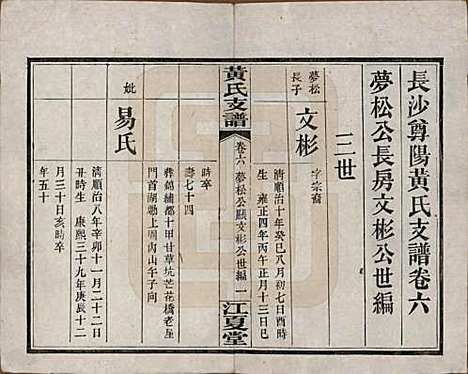 長沙尊陽黃氏支譜卷六
夢松公長房文彬公世編
三世
夢松長子
文彬
字宗裔
清順治十年癸巳八月初七日酉時
生 雍正四年丙午正月十三日巳
黃氏支譜
卷六 夢松公願文彬公世編 一
江夏堂
時卒
壽七十四
葬錦繡都十甲甘草坑芒花橋老屋
門首湖勘上周內山午子向
妣
易氏
清順治八年辛卯十一月二十二日
丑時生 康熙三十九年庚辰十二
月三十日亥時卒
年五十